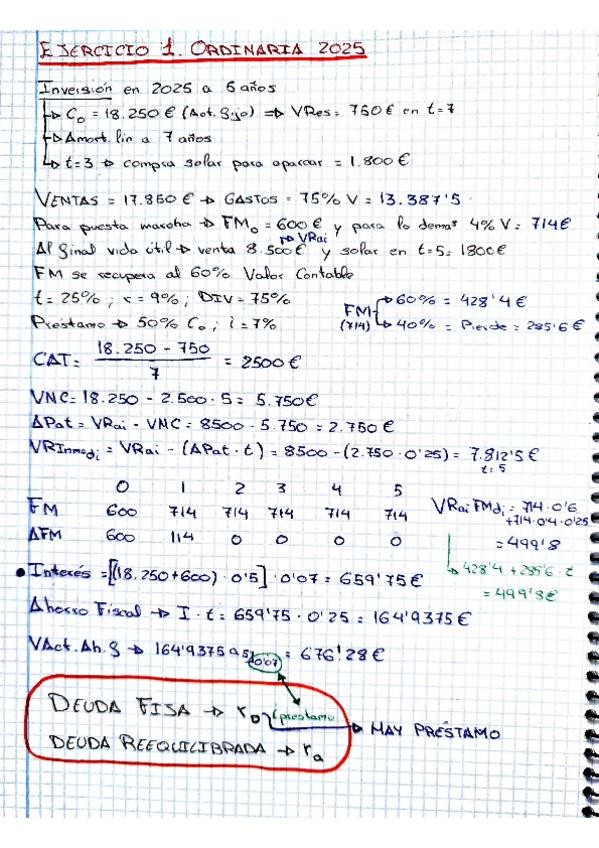 EJERCICIO 1. ORDINARIA 2025
Inversión en 2025 a 5 años
↳ C₀ = 18.250 € (Act. fijo) ⇒ VRes = 750 € en t=7
↳ Amort. lin a 7 años
↳ t=3 → compra solar para aparcar = 1.800 €
VENTAS = 17.850 € → GASTOS = 75% V = 13.387'5
Para puesta marcha → FM₀ = 600 € y para lo demás 4% V = 714€
Al final vida útil → venta 8.500€ y solar en t=5 = 1800€
↳ VRai
FM se recupera al 60% Valor Contable
t = 25% ; r = 9% ; DIV = 75%
Préstamo → 50% C₀ ; i = 7%
FM (714) → 60% = 428'4 €
→ 40% = Pierde = 285'6 €
CAT = (18.250 - 750) / 7 = 2500 €
VNC = 18.250 - 2.500 · 5 = 5.750€
ΔPat = VRai - VNC = 8500 - 5.750 = 2.750 €
VRInmdi = VRai - (ΔPat · t) = 8500 - (2.750 · 0'25) = 7.812'5 €
t=5
0 1 2 3 4 5
FM 600 714 714 714 714 714
ΔFM 600 114 0 0 0 0
VRai FMdi = 714 · 0'6
+ 714 · 0'4 · 0'25
= 499'8
↳ 428'4 + 285'6 · t
= 499'8 €
• Interés = [(18.250 + 600) · 0'5] · 0'07 = 659'75 €
Ahorro Fiscal → I · t = 659'75 · 0'25 = 164'9375 €
VAct. Ah. f → 164'9375 a5 0'07 = 676'28 €
DEUDA FIJA → rD i préstamo → HAY PRÉSTAMO
DEUDA REEQUILIBRADA → ra